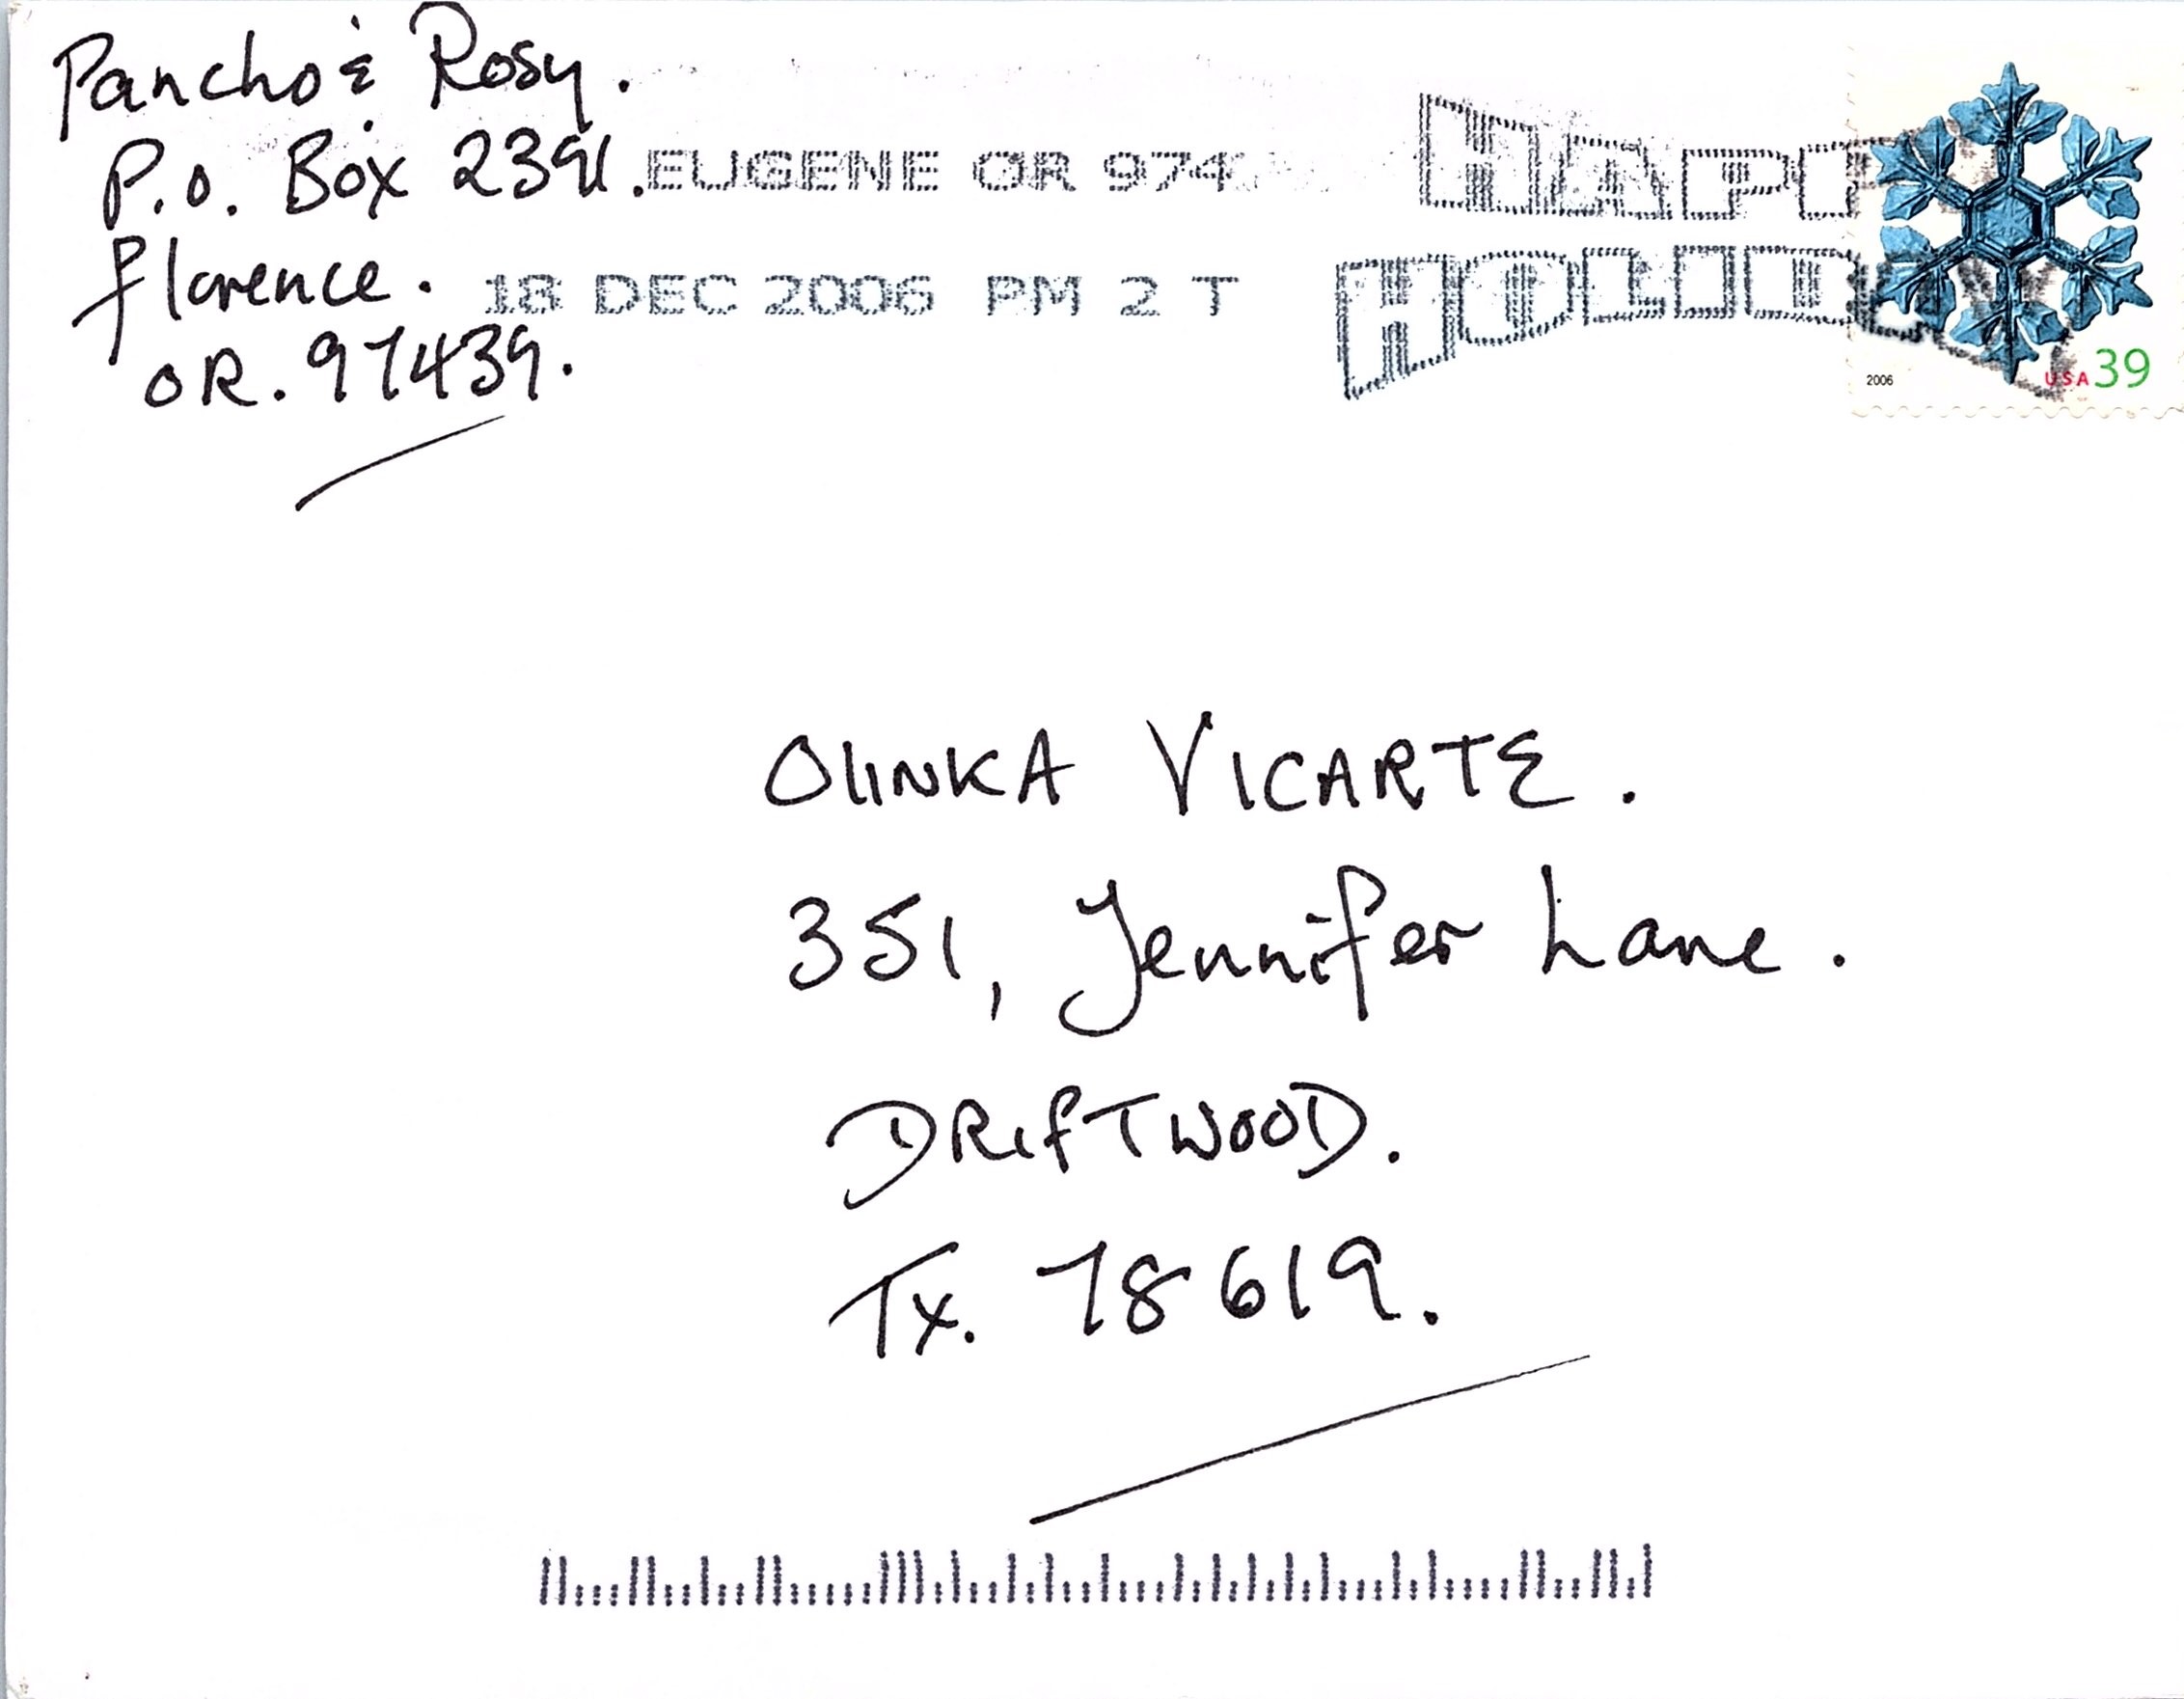 Pancho & Rosy.
P.O. Box 2391.
Florence.
OR. 97439.
EUGENE OR 974
18 DEC 2006 PM 2 T
HAPP
HOLID
2006
USA 39
OlINKA VICARTE.
351, Jennifer Lane.
DRIfTWOOD.
Tx. 78619.